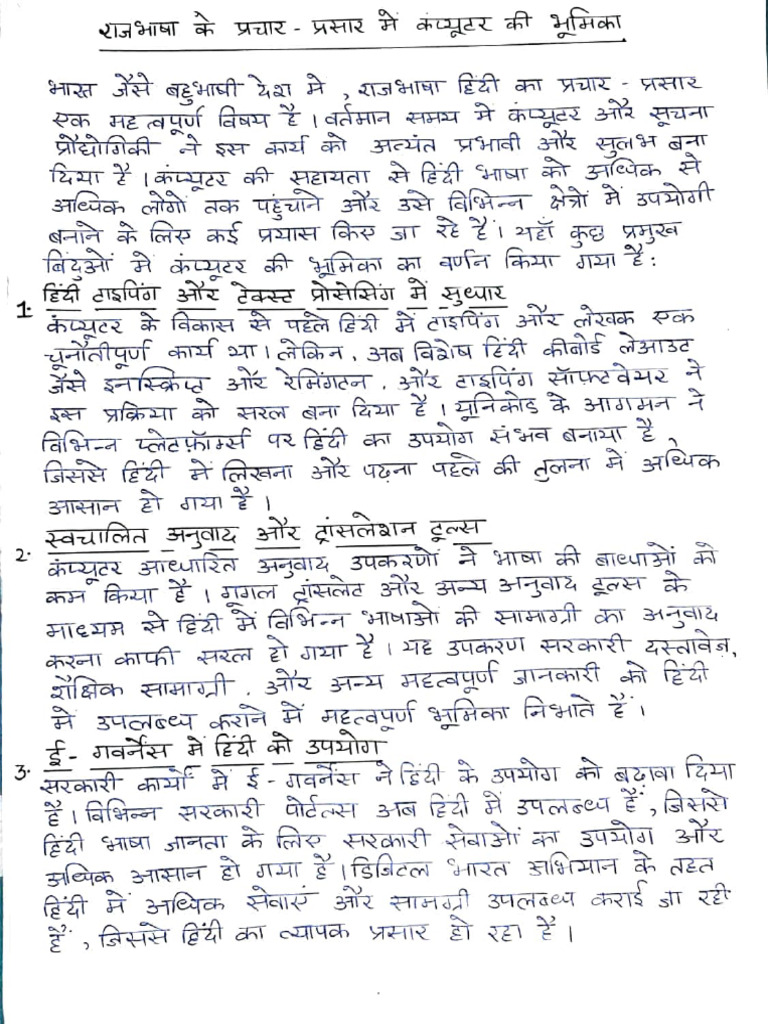 राजभाषा के प्रचार - प्रसार में कंप्यूटर की भूमिका
भारत जैसे बहुभाषी देश मे , राजभाषा हिंदी का प्रचार - प्रसार
एक महत्वपूर्ण विषय है । वर्तमान समय मे कंप्यूटर और सूचना
प्रौद्योगिकी ने इस कार्य को अत्यंत प्रभावी और सुलभ बना
दिया है । कंप्यूटर की सहायता से हिंदी भाषा को अधिक से
अधिक लोगों तक पहुंचाने और उसे विभिन्न क्षेत्रों में उपयोगी
बनाने के लिए कई प्रयास किए जा रहे हैं। यहाँ कुछ प्रमुख
बिंदुओं मे कंप्यूटर की भूमिका का वर्णन किया गया है :
1. हिंदी टाइपिंग और टेक्स्ट प्रोसेसिंग में सुधार
कंप्यूटर के विकास से पहले हिंदी में टाइपिंग और लेखक एक
चूनौतीपूर्ण कार्य था । लेकिन , अब विशेष हिंदी कीबोर्ड लेआउट
जैसे इनस्क्रिप्ट और रेमिंगटन , और टाइपिंग सॉफ़्टवेयर ने
इस प्रक्रिया को सरल बना दिया है । यूनिकोड के आगमन ने
विभिन्न प्लेटफ़ॉर्म्स पर हिंदी का उपयोग संभव बनाया है ,
जिससे हिंदी में लिखना और पढ़ना पहले की तुलना में अधिक
आसान हो गया है ।
2. स्वचालित अनुवाद और ट्रांसलेशन टूल्स
कंप्यूटर आधारित अनुवाद उपकरणों ने भाषा की बाधाओं को
कम किया है । गूगल ट्रांसलेट और अन्य अनुवाद टूल्स के
माध्यम से हिंदी में विभिन्न भाषाओं की सामाग्री का अनुवाद
करना काफी सरल हो गया है । यह उपकरण सरकारी दस्तावेज़,
शैक्षिक सामाग्री , और अन्य महत्वपूर्ण जानकारी को हिंदी
में उपलब्ध कराने में महत्वपूर्ण भूमिका निभाते हैं ।
3. ई - गवर्नेंस में हिंदी को उपयोग
सरकारी कार्यों में ई - गवर्नेंस ने हिंदी के उपयोग को बढ़ावा दिया
है । विभिन्न सरकारी पोर्टल्स अब हिंदी में उपलब्ध हैं , जिससे
हिंदी भाषा जानता के लिए सरकारी सेवाओं का उपयोग और
अधिक आसान हो गया है । डिजिटल भारत अभियान के तहत
हिंदी में अधिक सेवाएं और सामग्री उपलब्ध कराई जा रही
हैं , जिससे हिंदी का व्यापक प्रसार हो रहा है ।